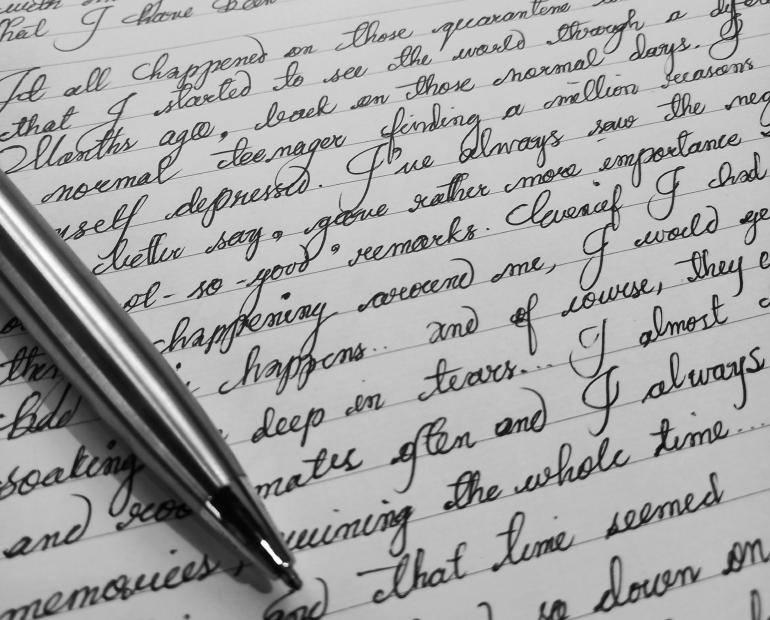 that I have been
It all happened on those quarantine
that I started to see the world through a
Months ago, back on those normal days. I
normal teenager finding a million reasons
depressed. I've always saw the neg
better say, gave rather more importance
so-good" remarks. I had
happening around me, I would ge
happens.. and of course, they
deep in tears... I almost
soaking mates often and I always
and the whole time...
memories, and that time seemed
so down on